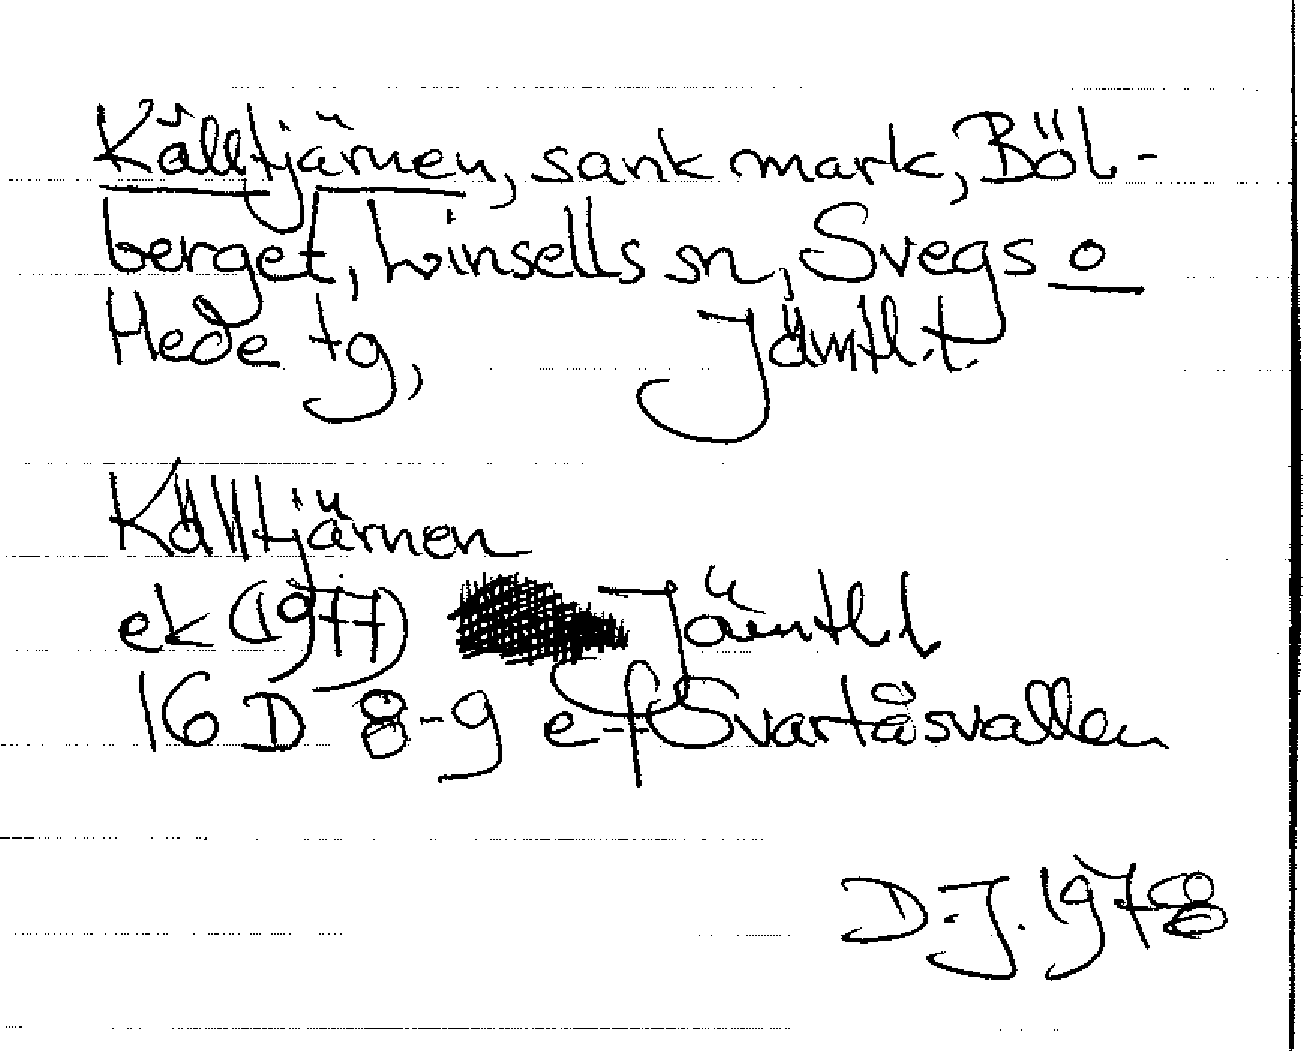 Källtjärnen, sank mark, Böl-
berget, Linsells sn, Svegs o
Hede tg, Jämtl.l.
Källtjärnen
ek (1977) Jämtl l
16 D 8-9 e-f Svartåsvallen
D.J. 1978